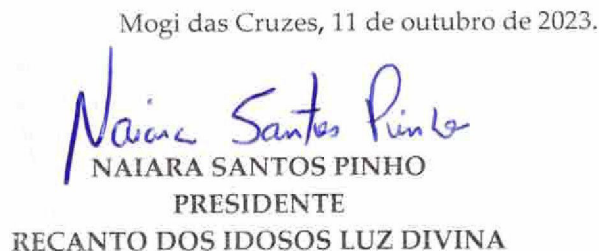 Mogi das Cruzes, 11 de outubro de 2023.
Naiara Santos Pinho
NAIARA SANTOS PINHO
PRESIDENTE
RECANTO DOS IDOSOS LUZ DIVINA